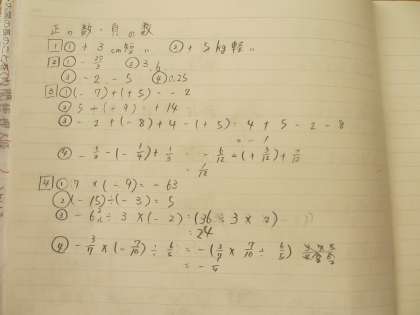 正の数・負の数
1 ① + 3 cm短い ② + 5 kg軽い
2 ① ② 3, 6
③ - 2 - 5 ④ 0.25
3 ① (- 7) + (+ 5) = - 2
② 5 + (+ 9) = + 14
③ - 2 + (- 8) + 4 - (+ 5) = 4 + 5 - 2 - 8
= - 1
④ - 1/2 - (- 1/4) + 1/3 = - 6/12 + (+ 3/12) +
= 1/12
4 ① 7 × (- 9) = - 63
② (- 15) ÷ (- 3) = 5
③ - 6² ÷ 3 × (- 2) = (36 ÷ 3 × 2)
= 24
④ - 3/4 × (- 7/10) ÷ 6/5 = - (3/4 × 7/10 ÷ 6/5)